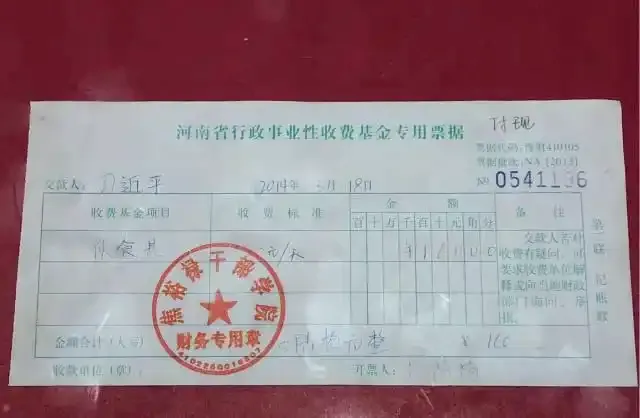 河南省行政事业性收费基金专用票据
付现
票据代码:豫财410105
票据批次:NA[2013]
№ 0541196
交款人:习近平 2014年 3月 18日
收费基金项目 收费标准 金额 备注
百十万千百十元角分
伙食费 元/天 ¥16000
交款人若对
收费有疑问,可
要求收费单位解
释或向当地财政
部门询问、举
报。
第一联 记账联
焦裕禄干部学院
财务专用章
金额合计(大写) 陆拾元整 ¥ 160
收款单位(章): 开票人: